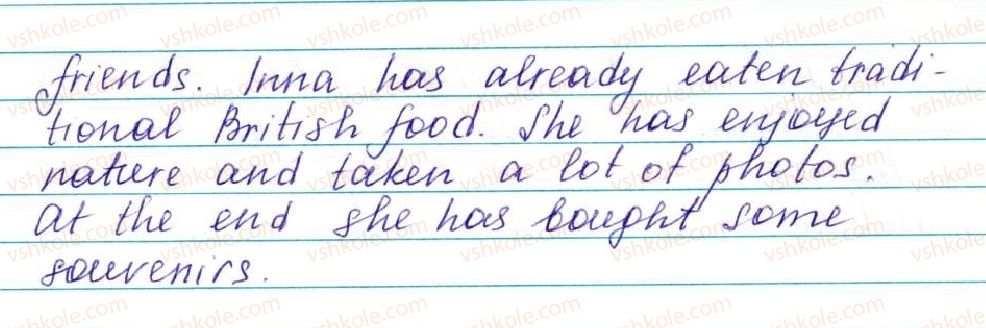 friends. Inna has already eaten tradi-
tional British food. She has enjoyed
nature and taken a lot of photos.
At the end she has bought some
souvenirs.